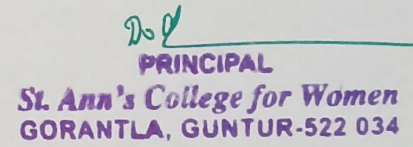 PRINCIPAL
St. Ann's College for Women
GORANTLA, GUNTUR-522 034